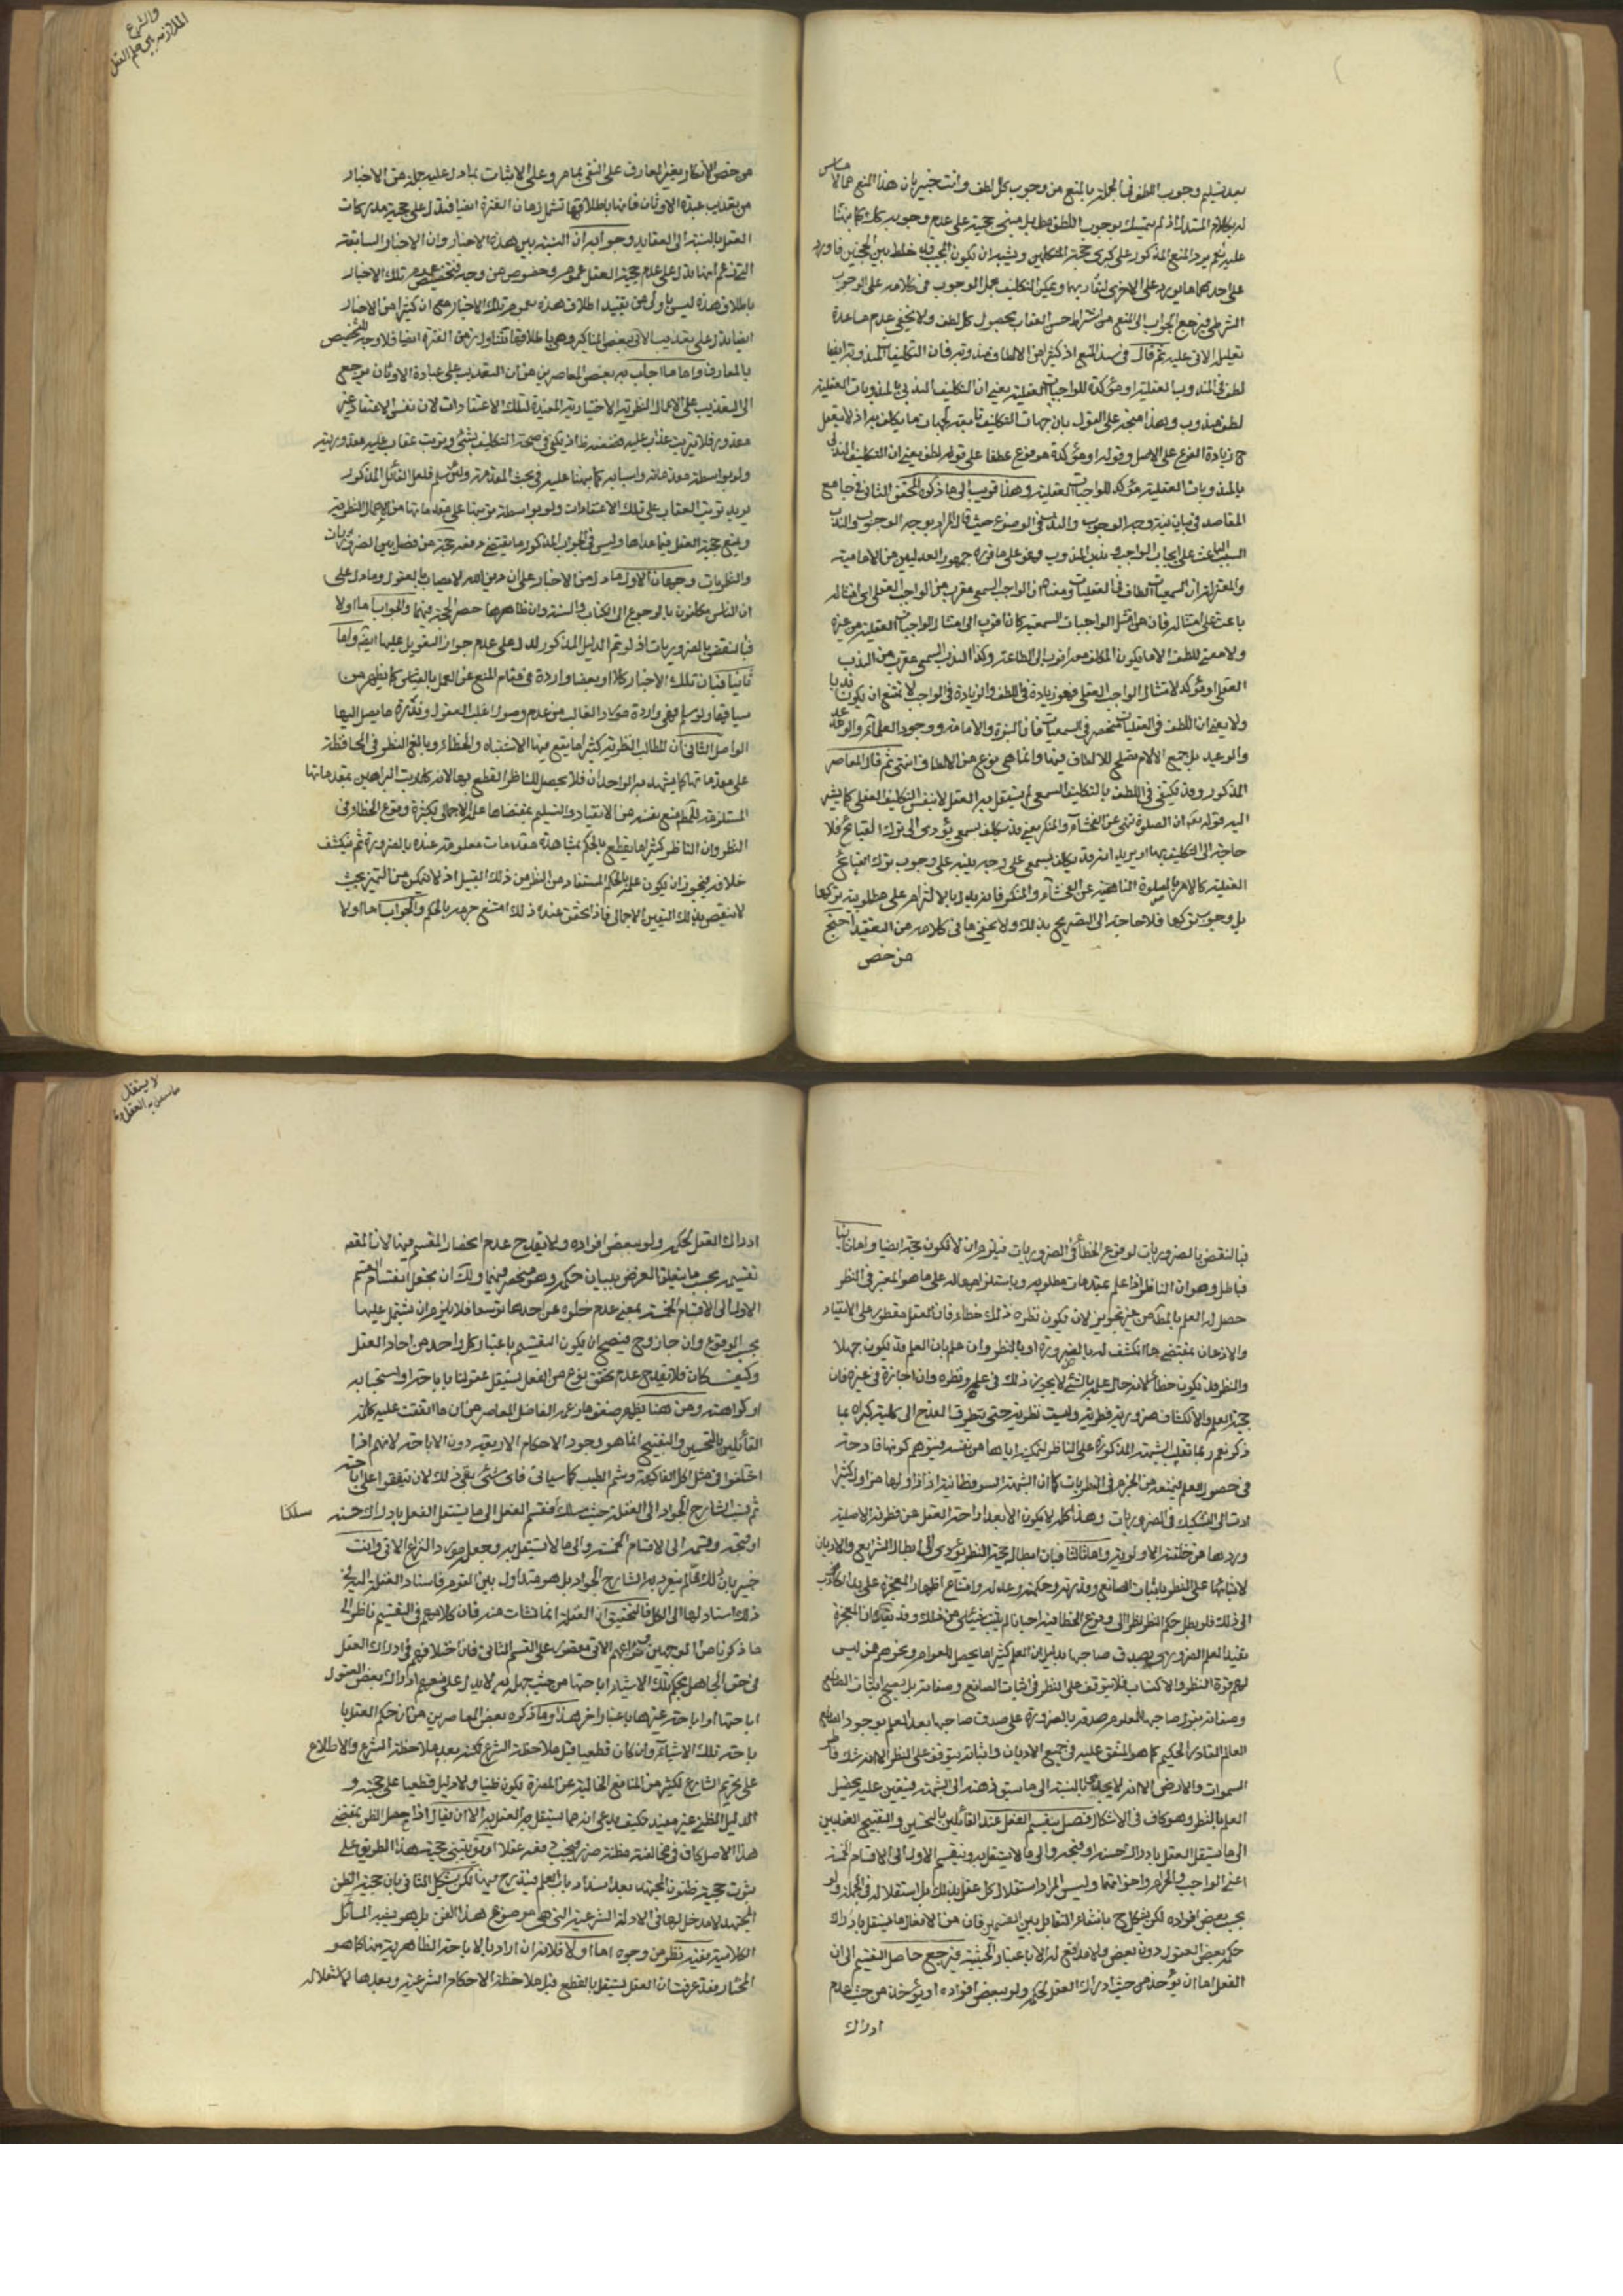 بعد تسليم وجوب اللطف في الجملة بالمنع من وجوب كل لطف وانت خبير بان هذا المنع مما لا مساس
له بكلام المستدل اذ لم يتمسك بوجوب اللطف مطلقا بل مبنى حجته على عدم وجوبه
عليه نعم يرد المنع المذكور على كبرى حجة المتكلمين ويشبه ان يكون المجيب قد خلط بين الحجتين فاورد
على احدهما ما يورد على الاخرى لتقاربهما ويمكن التكليف بحمل الوجوب في كلامه على الوجوب
الشرطي فيرجع الجواب الى المنع من اشتراط حسن العقاب بحصول كل لطف ولا يخفى عدم مساعدة
تعليل الاتي عليه ثم قال في سند المنع اذ كثير من الالطاف مندوبة فان التكليفات المندوبة ايضا
لطف في المندوبات العقلية او مؤكدة للواجبات العقلية يعني ان التكليف الندبي بالمندوبات العقلية
لطف مندوب وهذا متجه على القول بان جهات التكليف تابعة لجهات ما يكلف به اذ لا يعقل
ح زيادة الفرع على الاصل وقوله او مؤكدة مرفوع عطفا على قوله لطف يعني ان التكليف الندبي
بالمندوبات العقلية مؤكد للواجبات العقلية وهذا قريب الى ما ذكره المحقق الثاني في جامع
المقاصد في بيان نية وجه الوجوب والندب في الوضوء حيث قال المراد بوجه الوجوب والندب
السبب الباعث على ايجاب الواجب وندب المندوب وهو على ما قرره جمهور العدليين من الامامية
والمعتزلة ان السمعيات الطاف في العقليات ومعناه ان الواجب السمعي مقرب من الواجب العقلي اي امتثاله
باعث على امتثاله فان من امتثل الواجبات السمعية كان اقرب الى امتثال الواجبات العقلية من غيره
ولا معنى للطف الا ما يكون المكلف معه اقرب الى الطاعة وكذا الندب السمعي مقرب من الندب
العقلي او مؤكد لامتثال الواجب العقلي فهو زيادة في اللطف والزيادة في الواجب لا تمتنع ان يكون ندبا
ولا يعني ان اللطف في العقليات منحصر في السمعيات فان النبوة والامامة ووجود العلماء والوعد
والوعيد بل جميع الالام تصلح للالطاف فيها وانما هي نوع من الالطاف انتهى ثم قال المعاصر
المذكور وقد يكتفى في اللطف بالتكليف السمعي لم يستقل به العقل لا بنفس التكليف العقلي كما يشير
اليه قوله تعه ان الصلوة تنهى عن الفحشاء والمنكر يعني قد يكلف بسمعي يؤدي الى ترك القبائح فلا
حاجة الى التكليف بها او يريد انه قد يكلف بسمعي على وجه ينبه على وجوب ترك القبائح
العقلية كالامر بالصلوة الناهية عن الفحشاء والمنكر فانه يدل بالالتزام على مطلوبية تركها
بل وجوب تركها فلا حاجة الى التصريح بذلك ولا يخفى ما في كلامه من التعقيد احتج
من خص
والشرع
الملازمة بين حكم العقل
من خص الانكار بغير المعارف على النفي بما مر وعلى الاثبات بما دل عليه جملة من الاخبار
من تعذيب عبدة الاوثان فانها باطلاقها تشمل زمان الفترة ايضا فتدل على حجية مدركات
العقل بالنسبة الى العقايد وجوابه ان النسبة بين هذه الاخبار وان الاخبار السابقة
التي زعم انها تدل على عدم حجية العقل عموم وخصوص من وجه فتخصيص عموم تلك الاخبار
باطلاق هذه ليس باولى من تقييد اطلاق هذه بعموم تلك الاخبار مع ان كثيرا من الاخبار
ايضا تدل على تعذيب الاتي ببعض المناكير وهي باطلاقها تتناول زمن الفترة ايضا فلا وجه للتخصيص
بالمعارف واما ما اجاب به بعض المعاصرين من ان التعذيب على عبادة الاوثان يرجع
الى التعذيب على الاعمال النظرية الاختيارية المفيدة لتلك الاعتقادات لان نفس الاعتقاد غير
مقدور فلا يترتب عذاب عليه فضعفه ظ اذ يكفي في صحة التكليف بشئ وترتب عقاب عليه مقدوريته
ولو بواسطة مقدماته واسبابه كما بيننا عليه في بحث المقدمة ولئن سلم فلعل القائل المذكور
يريد ترتب العقاب على تلك الاعتقادات ولو بواسطة ترتبها على مقدماتها من الاعمال النظرية
ويمنع حجية العقل فيما عداها وليس في الجواب المذكور ما يقتضي دفعه حجة من فصل بين الضروريات
والنظريات وجهان الاول ما دل من الاخبار على ان دين الله لا يصاب بالعقول وما دل على
ان الناس مكلفون بالرجوع الى الكتاب والسنة وان ظاهرهما حصر الحجة فيهما والجواب اما اولا
فبالنقض بالضروريات اذ لو تم الدليل المذكور لدل على عدم جواز التعويل عليها ايضا واما
ثانيا فبان تلك الاخبار كلا او بعضا واردة في مقام المنع عن العمل بالقياس كما يظهر من
سياقها ولو سلم فهي واردة مورد الغالب من عدم وصول اغلب العقول وندرة ما يصل اليها
الواصل الثاني ان المطالب النظرية كثيرا ما يقع فيها الاشتباه والخطاء وبالغ النظر في المحافظة
على مقدماتها كما يشهد به الوجدان فلا يحصل للناظر القطع بها لانه كلما رتب البراهين بمقدماتها
المستلزمة للحكم منع نفسه من الانقياد والتسليم بمقتضاها علمه الاجمالي بكثرة وقوع الخطاء في
النظر وان الناظر كثيرا ما يقطع بالحكم بمشاهدة مقدمات معلومة عنده بالضرورة ثم ينكشف
خلافه فيجوز ان يكون علمه بالحكم المستفاد من النظر من ذلك القبيل اذ لا يتمكن من التميز بحيث
لا ينتقص بذلك اليقين الاجمالي فاذا تحقق عنده ذلك امتنع جزمه بالحكم والجواب اما اولا
فبالنقض بالضروريات لوقوع الخطأ في الضروريات فيلزم ان لا تكون حجة ايضا واما ثانيا
فبالحل وهو ان الناظر اذا علم بمقدمات مطلوبه وباستلزامها له على ما هو المعتبر في النظر
حصل له العلم بالمط من غير تجويز لان يكون نظره ذلك خطاء فان العقل مفطور على الانقياد
والاذعان بمقتضى ما انكشف له بالضرورة او بالنظر وان علم بان العلم قد يكون جهلا
والنظر قد يكون خطأ لانه حال علمه بالشئ لا يجوز ذلك في علمه ونظره وان اجازه في غيره فان
حجية العلم والانكشاف ضرورية فطرية وليست نظرية حتى يتطرق القدح الى كلية كبراه بما
ذكر نعم ربما تغلب الشبهة المذكورة على الناظر لتمكينه اياها من نفسه فيتوهم كونها قادحة
في حصول العلم فيمنعه من الجزم في النظريات كما ان الشبهة السوفسطائية اذا زاولها مزاول كثيرا
ادت الى التشكيك في الضروريات وهذا كله لا يكون الا بعد ازاحة العقل عن فطرته الاصلية
وردها عن خلقته الاولوية واما ثالثا فبان ابطال حجية النظر يؤدي الى ابطال الشرايع والاديان
لابتنائها على النظر باثبات الصانع وقدرته وحكمته وعدله وامتناع اظهار المعجزة على يد الكاذب
الى ذلك فلو بطل حكم النظر نظرا الى وقوع الخطا فيه احيانا لم يثبت شئ من ذلك وقد يقال ان المعجزة
تفيد العلم الضروري بصدق صاحبها بدليل ان العلم كثيرا ما يحصل للعوام ونحوهم ممن ليس
لهم قوة النظر والاكتساب فلا يتوقف على النظر في اثبات الصانع وصفاته بل يصح اثبات الصانع
وصفاته بقول صاحبها المعلوم صدقه بالضرورة على صدق صاحبها بعد العلم بوجود الصانع
العالم القادر الحكيم كما هو المتفق عليه في جميع الاديان واثباته يتوقف على النظر الا الله شك فاطر
السموات والارض الا انه لا يجدي بالنسبة الى ما سبق في ذهنه الى الشبهة فيتعين عليه تحصيل
العلم بالنظر وهو كاف في الاشكال فصل ينقسم الفعل عند القائلين بالتحسين والتقبيح العقليين
الى ما يستقل العقل بادراك حسنه او قبحه والى ما لا يستقل به وينقسم الاول الى الاقسام الخمسة
اعني الواجب والحرام واخواتهما وليس المراد استقلال كل عقل بذلك بل استقلاله في الجملة ولو
بحسب بعض افراده لكن يشكل ح بانتفاء التقابل بين القسمين فان من الافعال ما يستقل بادراك
حكمه بعض العقول دون بعض ولا مدفع له الا باعتبار الحيثية فيرجع حاصل التقسيم الى ان
الفعل اما ان يؤخذ من حيث ادراك العقل لحكمه ولو ببعض افراده او يؤخذ من حيث عدم
ادراك
لا يستقل
ما يستقل به العقل وما
ادراك العقل لحكمه ولو ببعض افراده ولا يقدح عدم انحصار المقسم فيها لان المقصد
تقسيمه بحسب ما يتعلق الغرض ببيان حكمه وهو منحصر فيهما ولك ان تجعل انقسام القسم
الاول الى الاقسام الخمسة بمعنى عدم خلوه عن احدها توسعا فلا يلزم ان يشتمل عليها
بحسب الوقوع وان جاز وح فيصح ان يكون التقسيم باعتبار كل واحد من احاد العقل
وكيف كان فلا يقدح عدم تحقق نوع من الفعل يستقل عقولنا باباحته او استحبابه
او كراهته ومن هنا يظهر ضعف ما زعمه الفاضل المعاصر من ان ما اتفقت عليه كلمة
القائلين بالتحسين والتقبيح انما هو وجود الاحكام الاربعة دون الاباحة لانهم اذا
اختلفوا في مثل اكل الفاكهة وشم الطيب كما سيأتي فاى شئ يبقى بعد ذلك لان يتفقوا على اباحته
ثم نسب الشارح الجواد الى الغفلة حيث سلك فقسم الفعل الى ما يستقل العقل بادراك حسنه
سلكنا
او قبحه وقسمه الى الاقسام الخمسة والى ما لا يستقل به وجعل مورد النزاع الاتي وانت
خبير بان ذلك مما لم يتفرد به الشارح الجواد بل هو متداول بين القوم فاسناد الغفلة اليه في
ذلك اسناد لها الى الكل فالتحقيق ان الغفلة انما نشأت منه فان كلامهم في التقسيم ناظر الى
ما ذكرنا من الوجهين ونزاعهم الاتي مقصور على القسم الثاني فان اختلافهم في ادراك العقل
في حق الجاهل بحكم تلك الاشياء اباحتها من حيث جهله به لا يدل على منعهم ادراك بعض العقول
اباحتها او اباحة غيرها باعتبار اخر هذا وما ذكره بعض المعاصرين من ان حكم العقل با
باحة تلك الاشياء وان كان قطعيا قبل ملاحظة الشرع لكنه بعد ملاحظة الشرع والاطلاع
على تحريم الشارع لكثير من المنافع الخالية عن المضرة يكون ظنيا ولا دليل قطعيا على حجيته و
الدليل الظني غير مفيد فكيف يدعى انه مما يستقل به العقل الا ان يقال اذا حصل الظن بمقتضى
هذا الاصل كاف في مخالفته مظنة ضرر فيجب دفعه عقلا او يبتني حجية هذا الطريق على
ثبوت حجية ظنون المجتهد بعد انسداد باب العلم فيندرج فيها لكن يشكل الثاني بان حجية الظن
المجتهد لا مدخل لها في الادلة الشرعية التي هي موضوع هذا الفن بل هو يشبه المسائل
الكلامية ففيه نظر من وجوه اما اولا فلانه ان اراد بالاباحة الاباحة الظاهرية كما هو
المختار فقد عرفت ان العقل يستقل بالقطع قبل ملاحظة الاحكام الشرعية وبعدها لاستقلاله